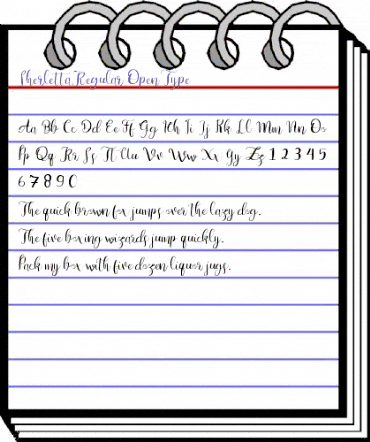 Sherletta Regular Open Type
Aa Bb Cc Dd Ee Ff Gg Hh Ii Jj Kk Ll Mm Nn Oo
Pp Qq Rr Ss Tt Uu Vv Ww Xx Yy Zz 1 2 3 4 5
6 7 8 9 0
The quick brown fox jumps over the lazy dog.
The five boxing wizards jump quickly.
Pack my box with five dozen liquor jugs.